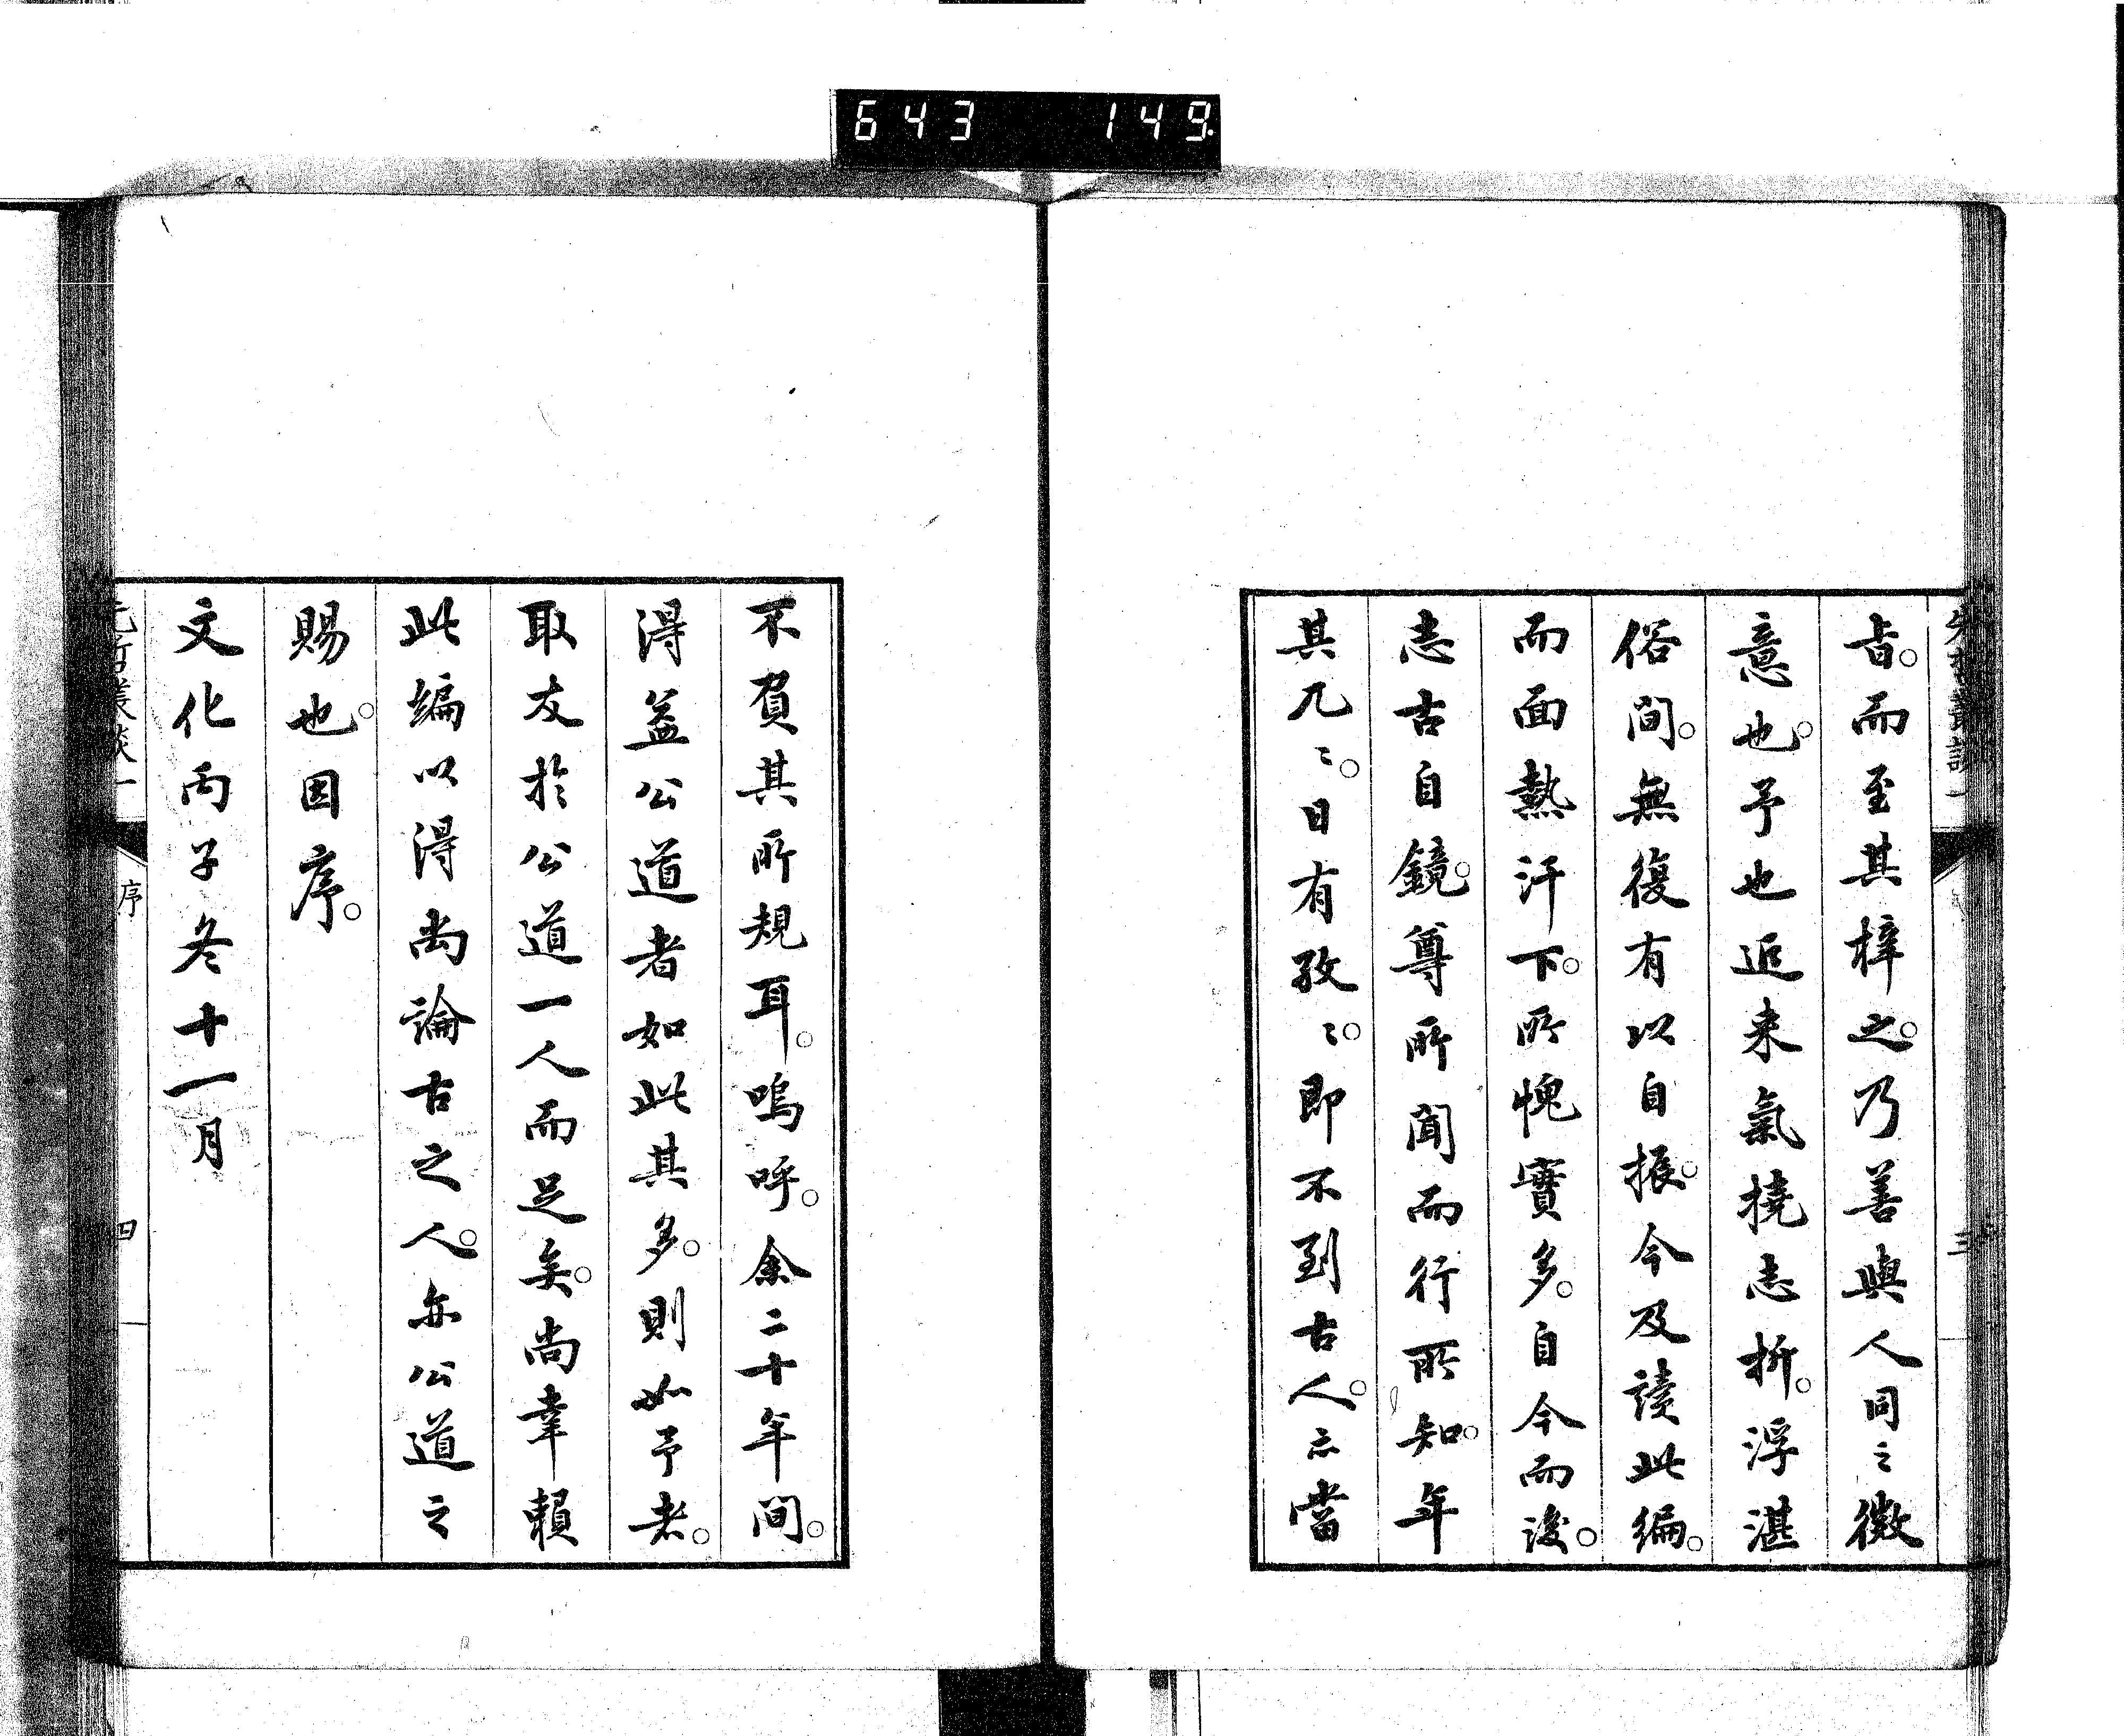 643 149
旨。而至其梓之。乃善與人同之徴
意也。予也近来氣撓志折。浮湛
俗間。無復有以自振。今及讀此編。
而面熱汗下。所愧實多。自今而後。
志古自鏡。尊所聞而行所知。年
其几〻。日有孜〻。即不到古人。亦當
三
不負其所規耳。嗚呼。余二十年間。
得益公道者如此其多。則如予者。
取友於公道一人而足矣。尚幸賴
此編以得尚論古之人。亦公道之
賜也。因序。
文化丙子冬十一月
先哲叢談一
序
四